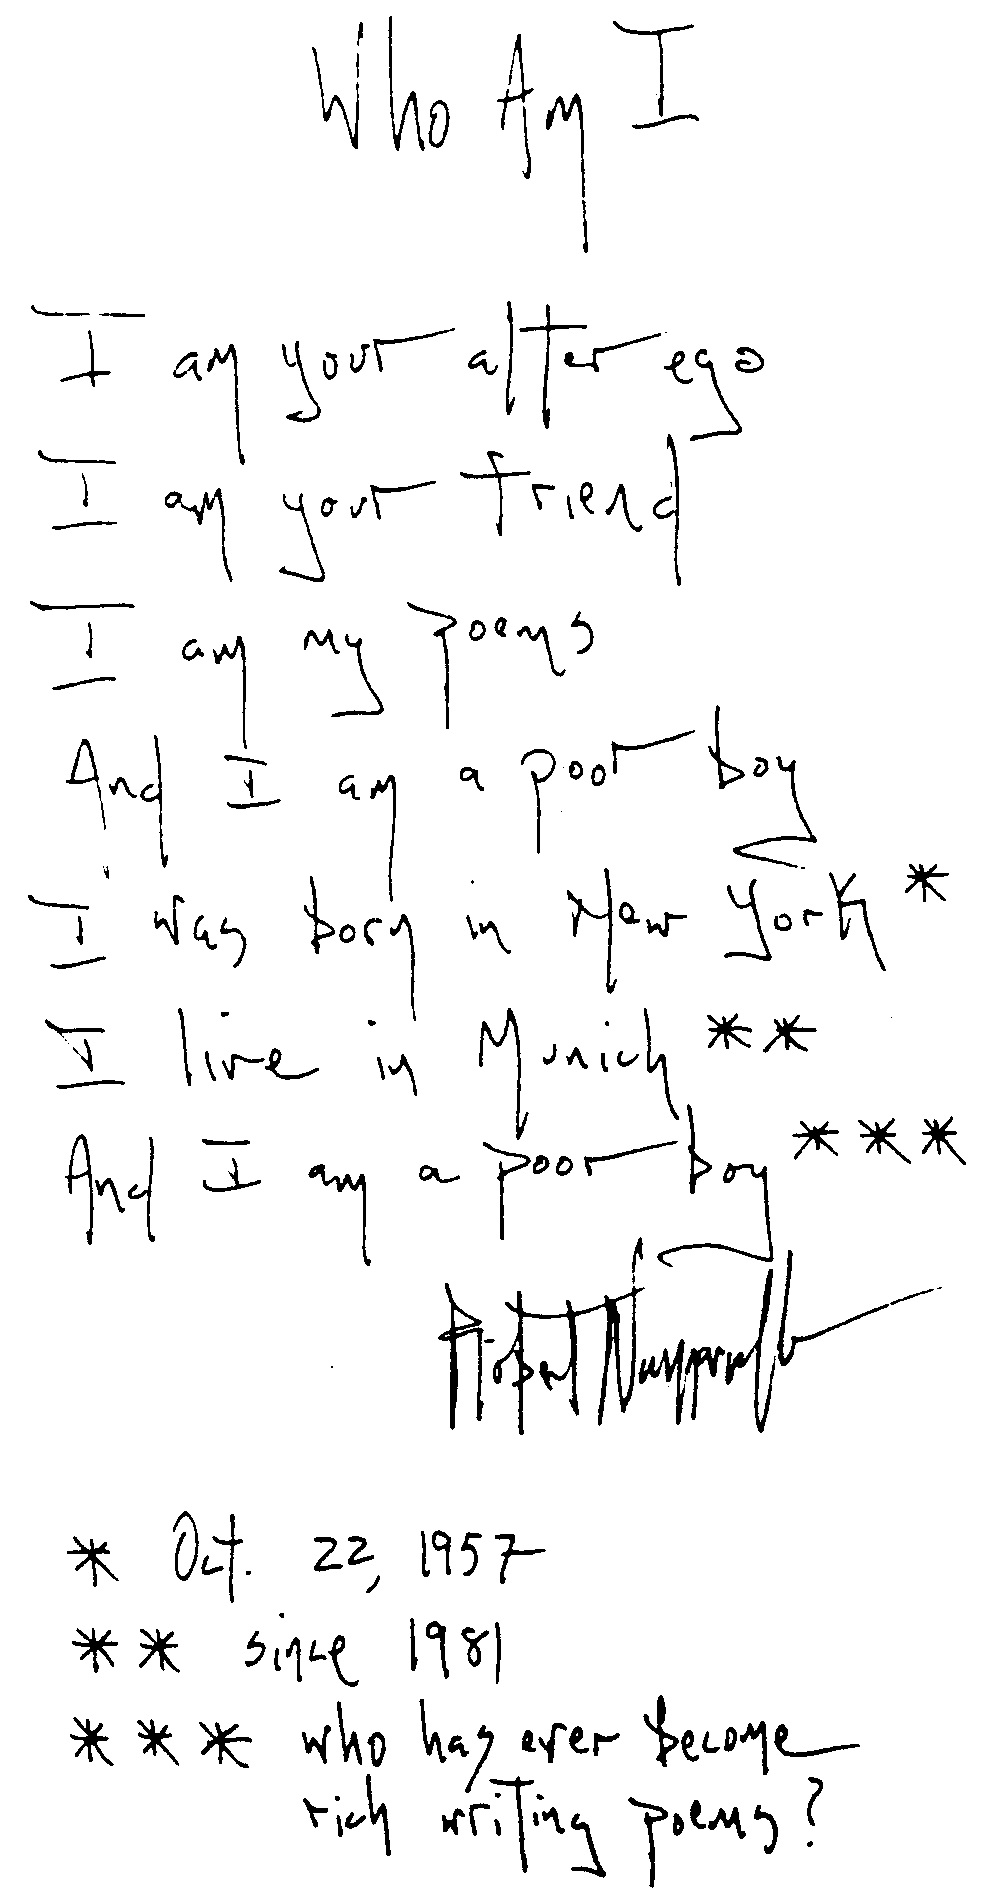 Who Am I
I am your alter ego
I am your friend
I am my poems
And I am a poor boy
I was born in New York *
I live in Munich **
And I am a poor boy ***
Robert
* Oct. 22, 1957
** since 1981
*** who has ever become
rich writing poems?